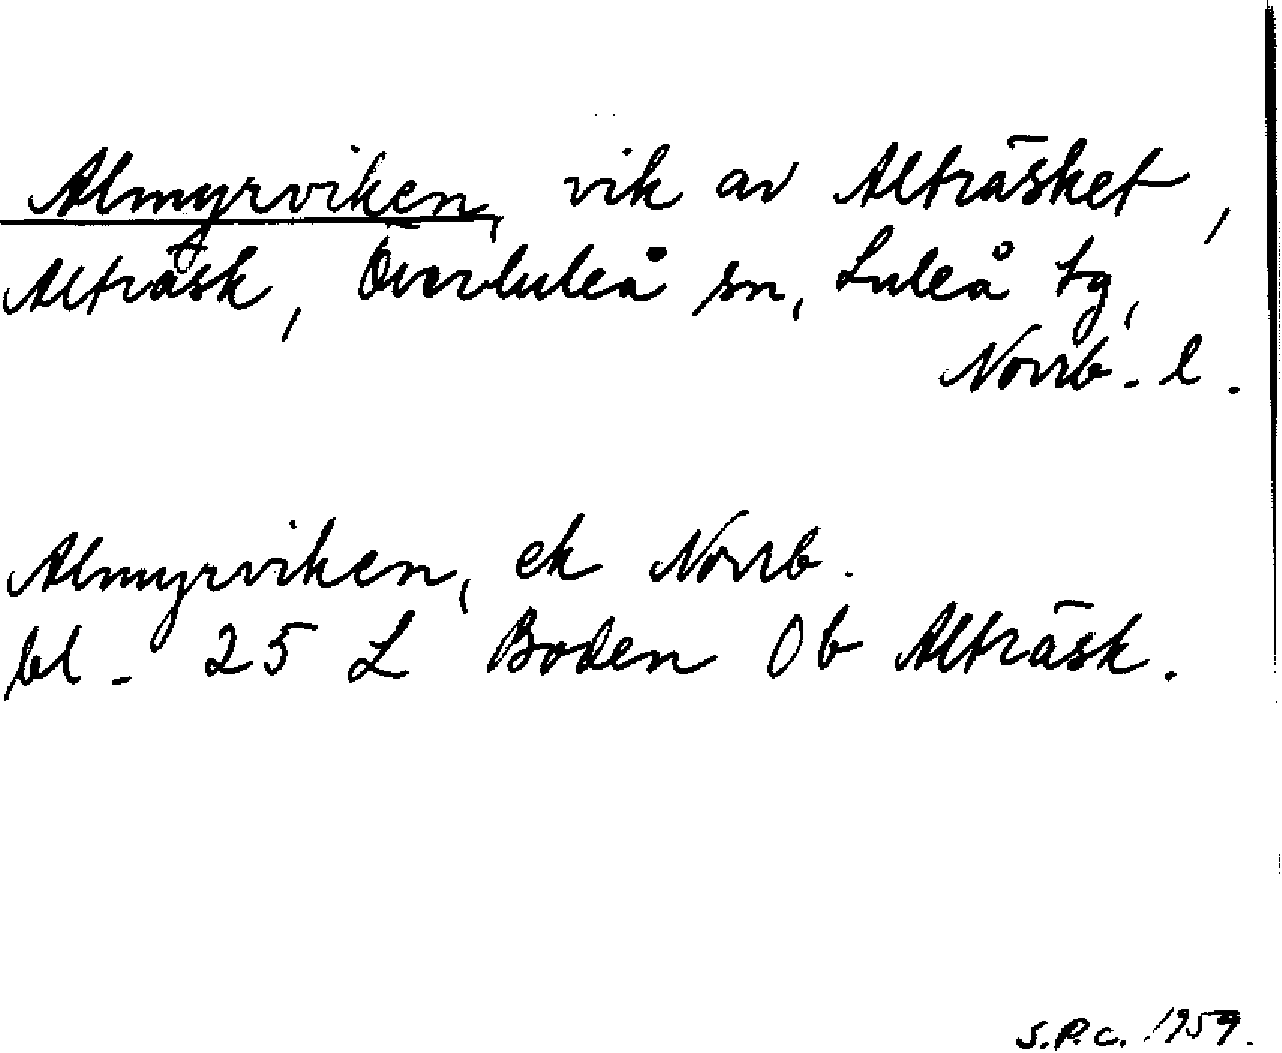 Almyrviken, vik av Alträsket,
Alträsk, Överluleå sn, Luleå tg,
Norrb. l.
Almyrviken, ek Norrb.
bl. 25 L Boden 0b Alträsk.
S.P.C. 1959.